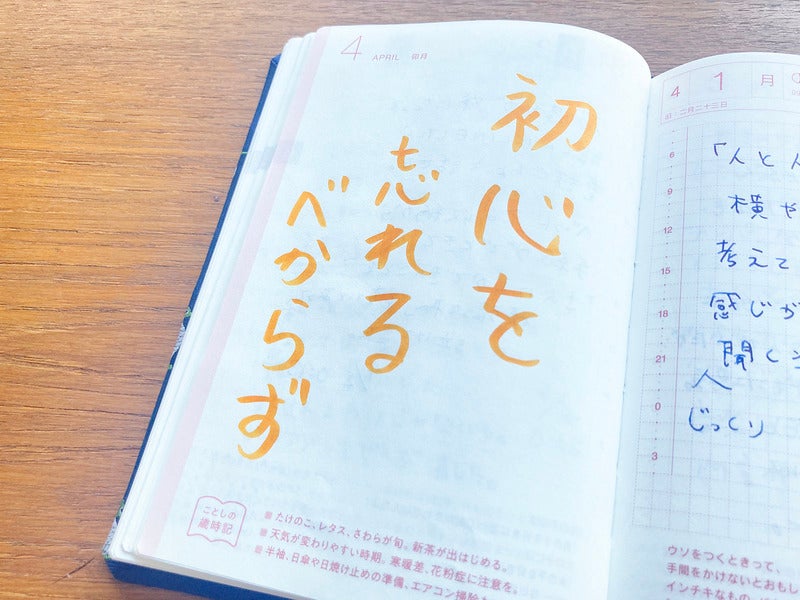 4 APRIL 卯月
初心を
忘れる
べからず
ことしの
歳時記
たけのこ、レタス、さわらが旬。新茶が出はじめる。
天気が変わりやすい時期。寒暖差、花粉症に注意を。
半袖、日傘や日焼け止めの準備、エアコン掃除
4 1 月
二月二十三日
6
9
12
15
18
21
0
3
「人と人
横や
考えて
感じが
聞く
人
じっくり
ウソをつくときって、
手間をかけないとおもし
インチキなもの